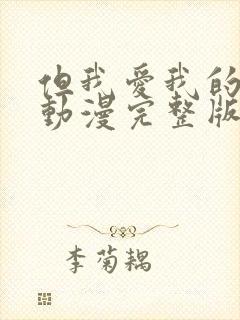 但我愛我的
動漫完整版
李菊耦